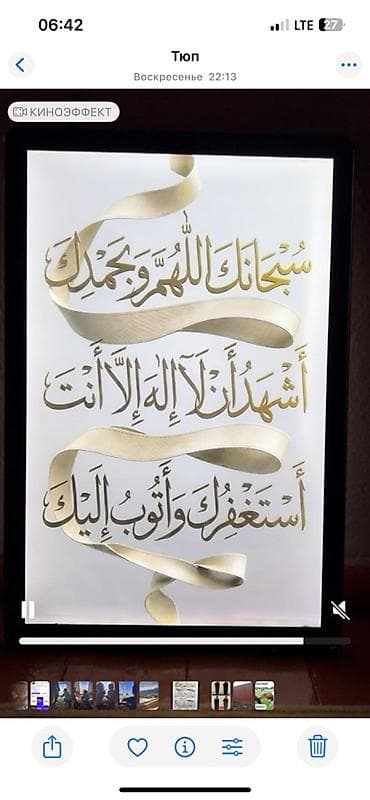 06:42
LTE 27
Тюп
Воскресенье 22:13
КИНОЭФФЕКТ
سُبْحَانَكَ اللَّهُمَّ وَبِحَمْدِكَ
أَشْهَدُ أَنْ لَآ إِلٰهَ إِلَّا أَنْتَ
أَسْتَغْفِرُكَ وَأَتُوبُ إِلَيْكَ